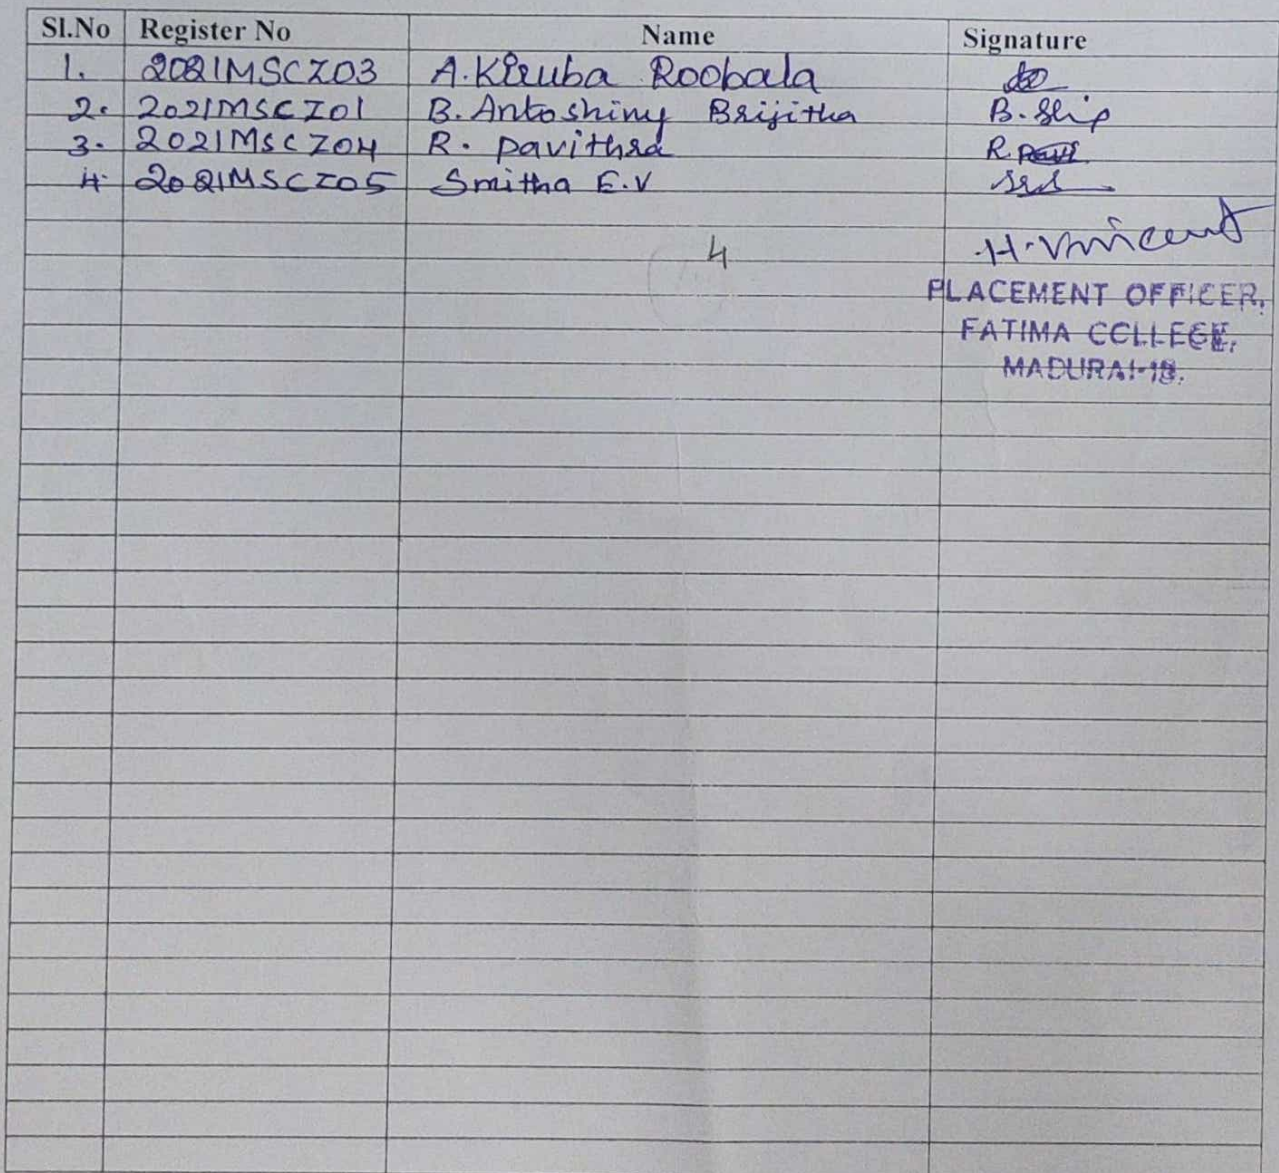 Sl.No Register No Name Signature
1. 2021MSCZ03 A.Kiruba Roobala
2. 2021MSCZ01 B.Antoshiny Brijitha B.
3. 2021MSCZ04 R. Pavithra R.
4. 2021MSCZ05 Smitha E.V
4 H.Vincent
PLACEMENT OFFICER,
FATIMA COLLEGE,
MADURAI-18.